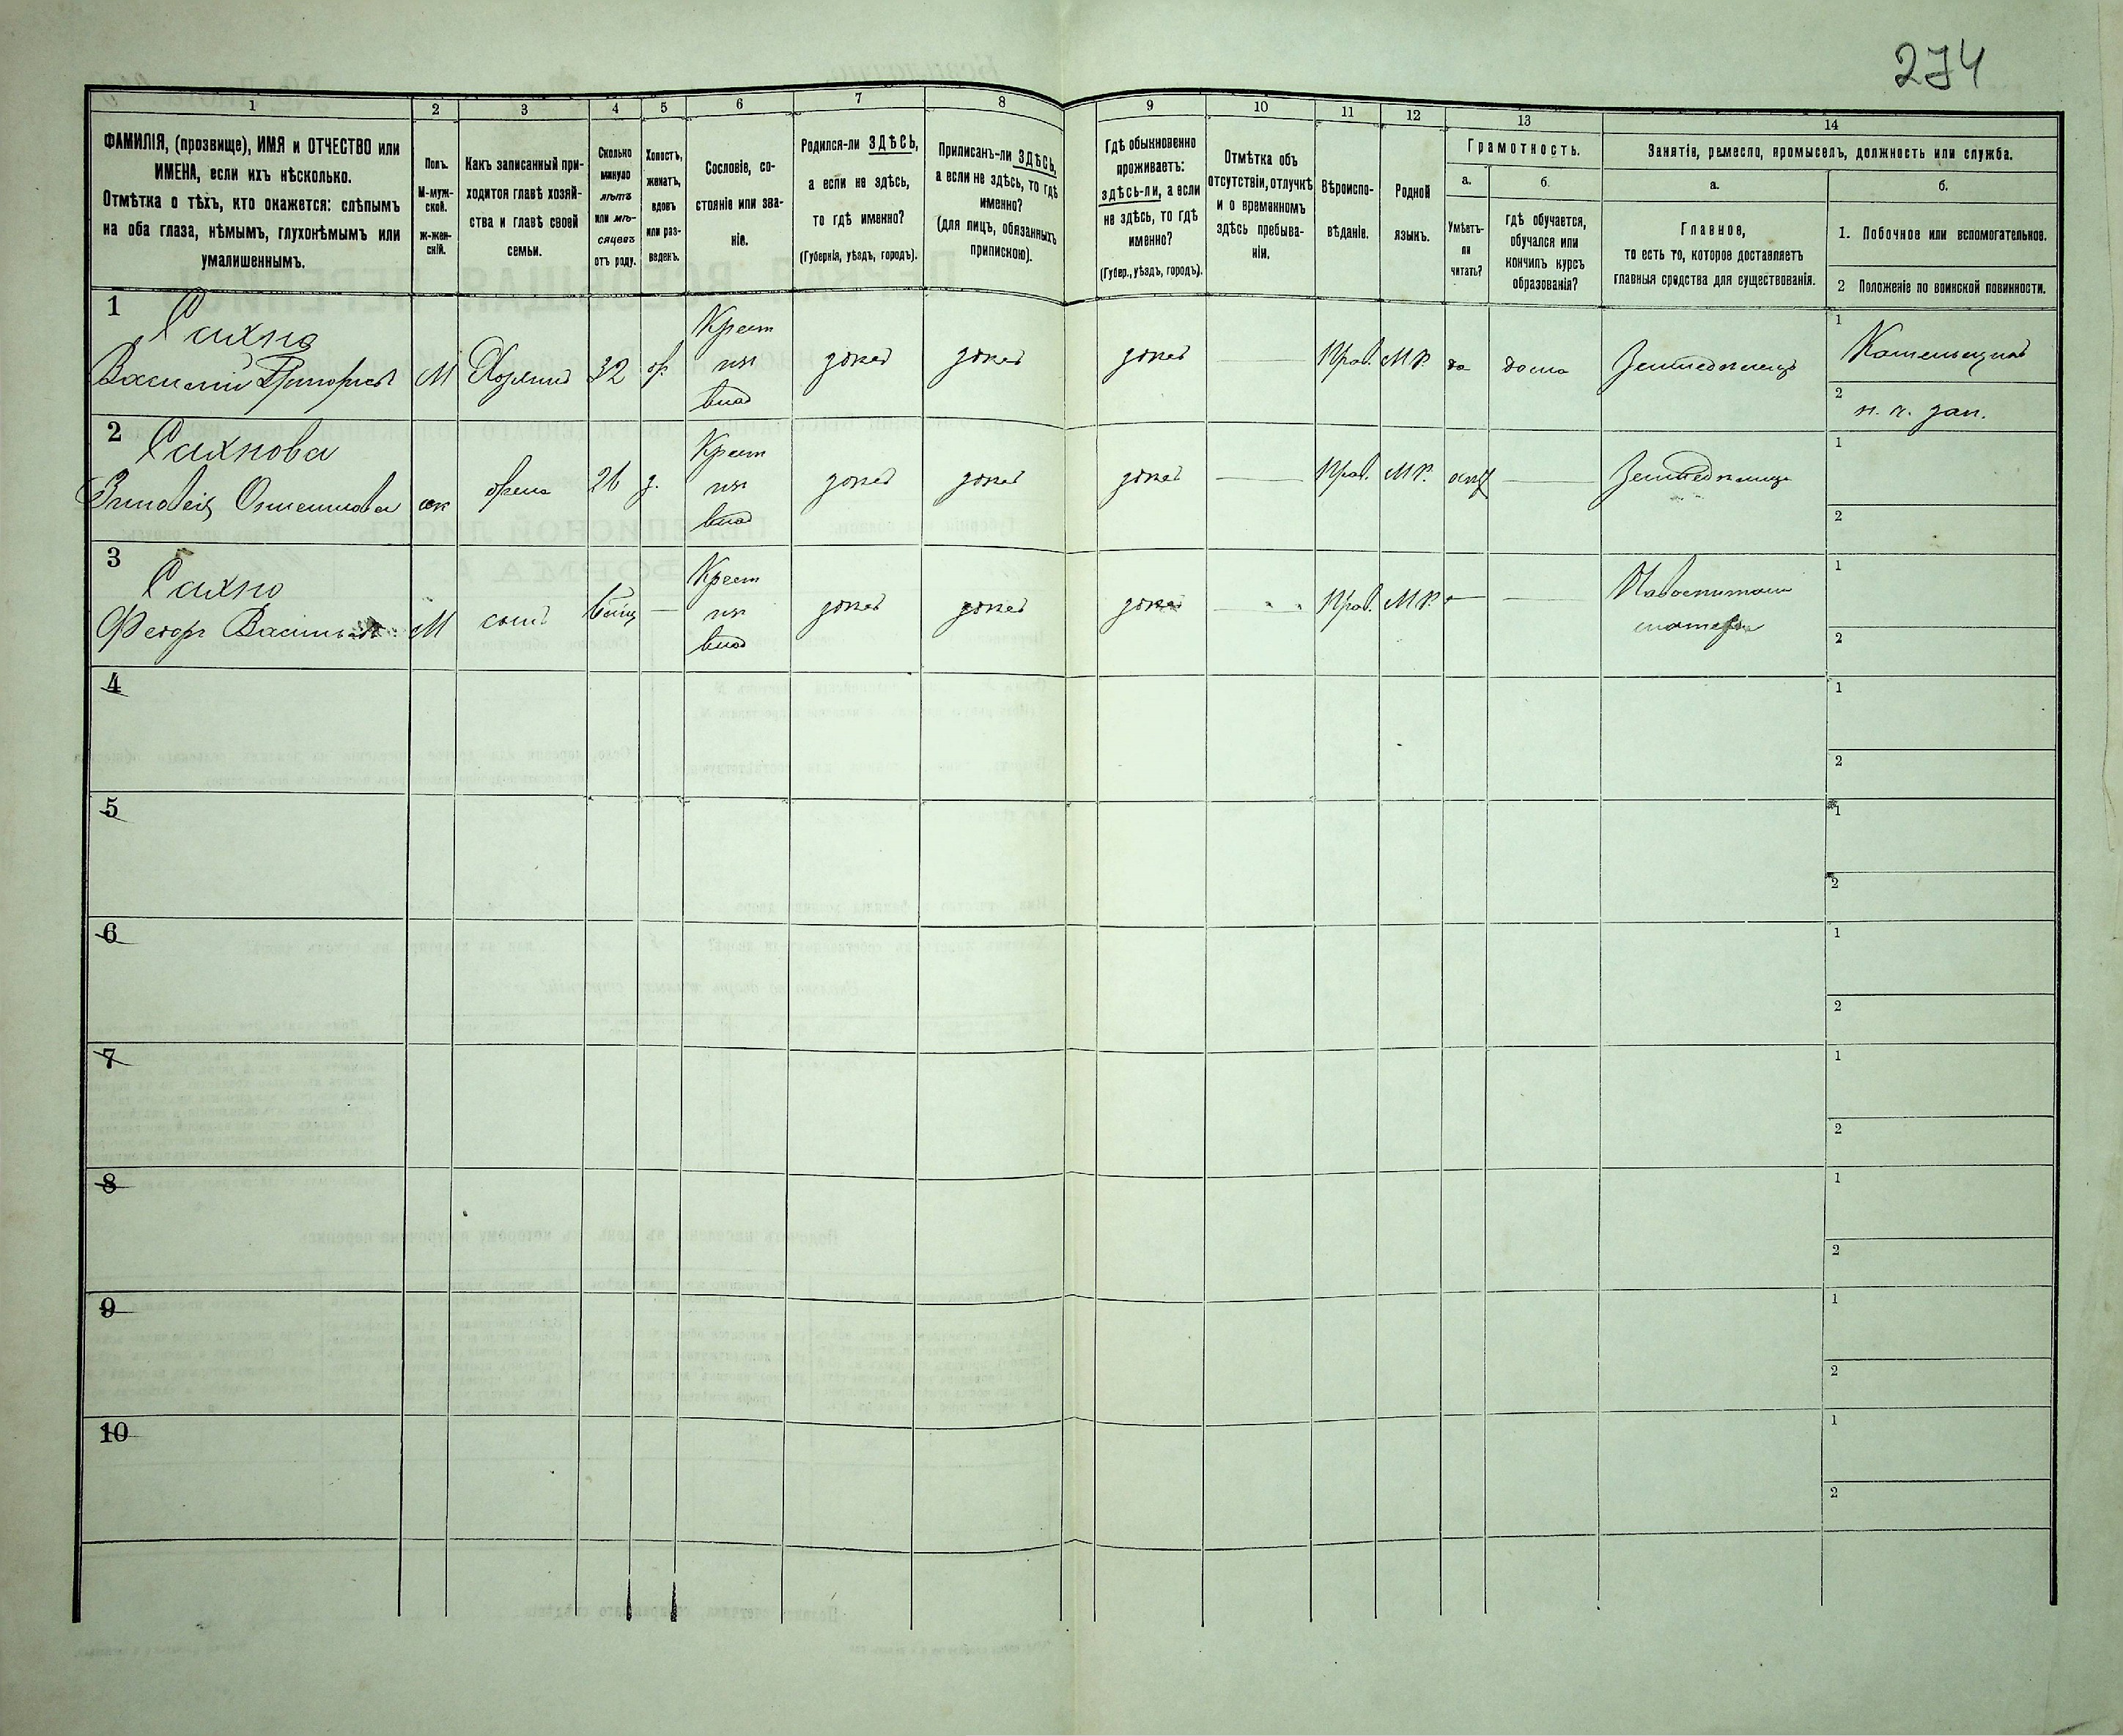 274
1
2
3
4
5
6
7
8
9
10
11
12
13
14
ФАМИЛІЯ, (прозвище), ИМЯ и ОТЧЕСТВО или
ИМЕНА, если ихъ нѣсколько.
Отмѣтка о тѣхъ, кто окажется: слѣпымъ
на оба глаза, нѣмымъ, глухонѣмымъ или
умалишеннымъ.
Полъ.
М-муж-
ской.
Ж-жен-
скій.
Какъ записанный при-
ходится главѣ хозяй-
ства и главѣ своей
семьи.
Сколько
минуло
лѣтъ
или мѣ-
сяцевъ
отъ роду.
Холостъ,
женатъ,
вдовъ
или раз-
веденъ.
Сословіе, со-
стояніе или зва-
ніе.
Родился-ли ЗДѢСЬ,
а если не здѣсь,
то гдѣ именно?
(Губернія, уѣздъ, городъ).
Приписанъ-ли ЗДѢСЬ,
а если не здѣсь, то гдѣ
именно?
(для лицъ, обязанныхъ
припискою).
Гдѣ обыкновенно
проживаетъ:
здѣсь-ли, а если
не здѣсь, то гдѣ
именно?
(Губер., уѣздъ, городъ).
Отмѣтка объ
отсутствіи, отлучкѣ
и о временномъ
здѣсь пребыва-
ніи.
Вѣроиспо-
вѣданіе.
Родной
языкъ.
Грамотность.
а.
Умѣетъ-
ли
читать?
б.
гдѣ обучается,
обучался или
кончилъ курсъ
образованія?
Занятія, ремесло, промыселъ, должность или служба.
а.
Главное,
то есть то, которое доставляетъ
главныя средства для существованія.
б.
1. Побочное или вспомогательное.
2 Положеніе по воинской повинности.
1
Сахно
Василій Григорьев
М
Хозяинъ
32
Крест
влад
здѣсь
здѣсь
здѣсь
Прав.
М Р.
да
дома
Земледелецъ
1
2
2
Сахнова
Зиновія
ж
жена
26
Крест
влад
здѣсь
здѣсь
здѣсь
Прав.
М Р.
1
2
3
Сахно
Федоръ Васильев
М
сынъ
Крест
влад
здѣсь
здѣсь
здѣсь
Прав.
М Р.
1
2
4
1
2
5
1
2
6
1
2
7
1
2
8
1
2
9
1
2
10
1
2